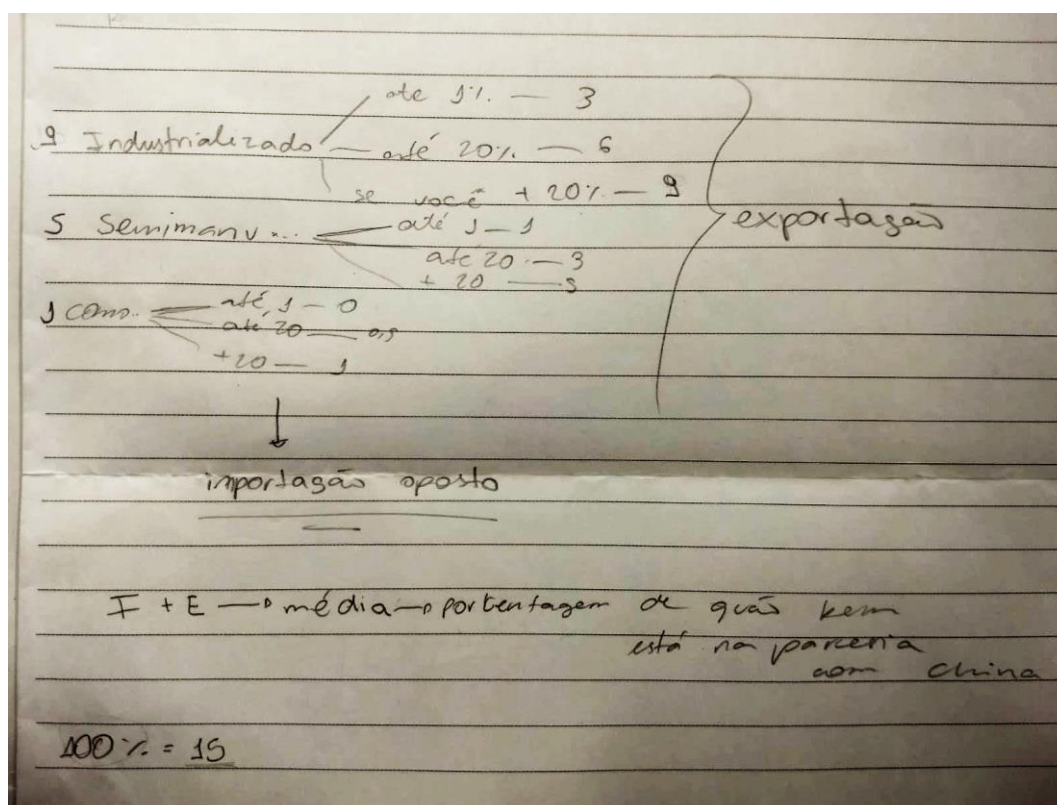 até 1% — 3
9 Industrializado — até 20% — 6
se você + 20% — 9
5 Semimanu... — até 1 — 1
até 20 — 3
+ 20 — 5
exportação
1 Como.. — até 1 — 0
até 20 — 0,5
+20 — 1
importação oposto
I + E → média → porcentagem de quão bem
está na parceria
com China
100% = 15